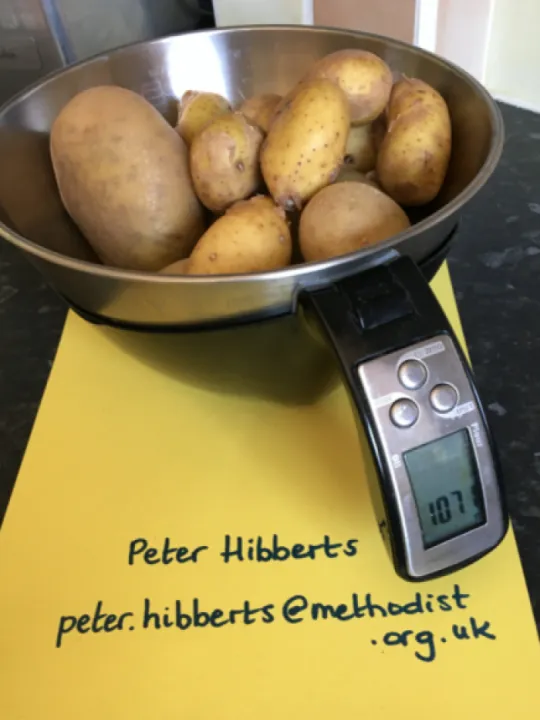 107
Peter Hibberts
peter.hibberts@methodist
.org.uk